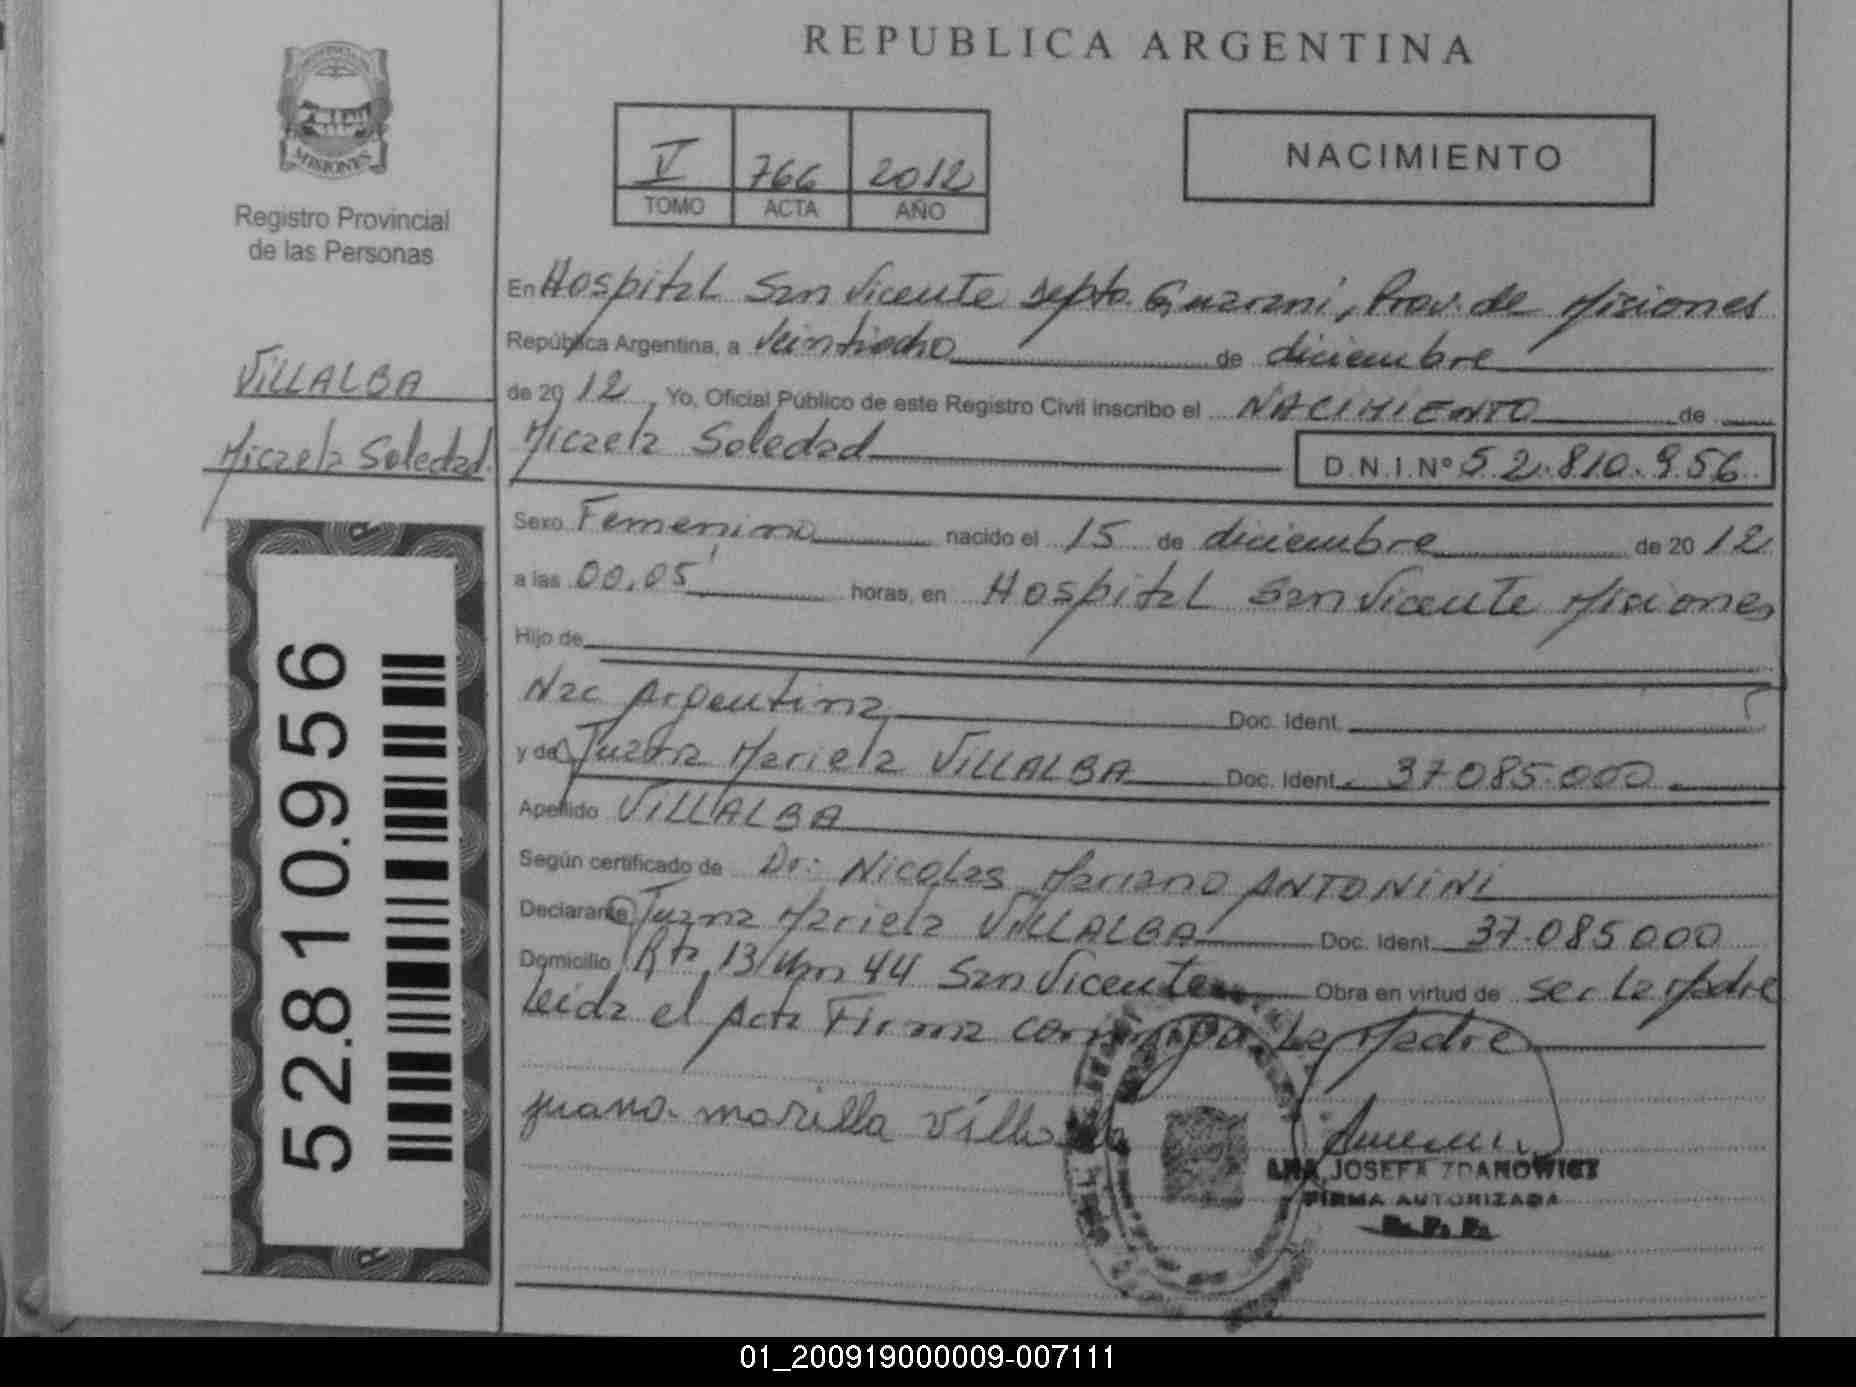 REPUBLICA ARGENTINA
MISIONES
Registro Provincial
de las Personas
V 766 2012
TOMO ACTA AÑO
NACIMIENTO
VILLALBA
Micaela Soledad.
52.810.956
En Hospital San Vicente Depto. Guarani, Prov. de Misiones
República Argentina, a Veintiocho de diciembre
de 2012. Yo, Oficial Público de este Registro Civil inscribo el NACIMIENTO de
Micaela Soledad D.N.I. Nº 52.810.956
Sexo Femenino nacido el 15 de diciembre de 2012
a las 00,05' horas, en Hospital San Vicente Misiones
Hijo de
Nac Argentina Doc. Ident.
y de Juana Mariela VILLALBA Doc. Ident. 37.085.000
Apellido VILLALBA
Según certificado de Dr: Nicolas Mariano ANTONINI
Declarante Juana Mariela VILLALBA Doc. Ident. 37.085.000
Domicilio Rta 13 Km 44 San Vicente Obra en virtud de ser La Madre
Leida el Acta Firma conmigo La Madre
juana mariella Villa
ANA JOSEFA ZDANOWICZ
FIRMA AUTORIZADA
R. P. P.
01_200919000009-007111